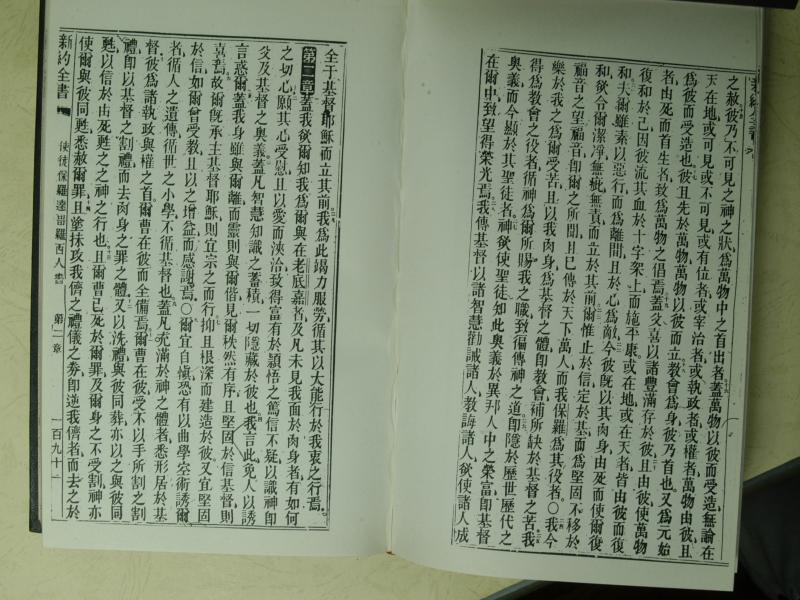 新約全書
之赦彼乃不可見之神之狀爲萬物中之首出者蓋萬物以彼而受造無論在
天在地或可見或不可見或有位者或宰治者或執政者或權者萬物由彼且
爲彼而受造也彼且先於萬物萬物以彼而立教會爲身彼乃首也又爲元始
者由死而首生者致爲萬物之倡焉蓋父喜以諸豐滿存於彼且由彼使萬物
復和於己因彼流其血於十字架上而施平康或在地或在天者皆由彼而復
和夫爾雖素以惡行而爲離間且於心爲敵今彼旣以其肉身由死而使爾復
和欲令爾潔淨無疵無責而立於其前爾惟止於信定於基而爲堅固不移於
福音之望福音卽爾之所聞且已傳於天下萬人而我保羅爲其役者〇我今
樂於我之爲爾受苦且以我肉身爲基督之體卽教會補所缺於基督之苦我
得爲教會之役者循神爲爾所賜我之職致徧傳神之道卽隱於歷世歷代之
奧義而今顯於其聖徒者神欲使聖徒知此奧義於異邦人中之榮富卽基督
在爾中致望得榮光焉我傳基督以諸智慧勸誡諸人教誨諸人欲使諸人成
全于基督耶穌而立其前我爲此竭力服勞循其以大能行於我衷之行焉
第二章蓋我欲爾知我爲爾與在老底嘉者及凡未見我面於肉身者有如何
之切心願其心受慰且以愛而浹洽致得富有於穎悟之篤信不疑以識神卽
父及基督之奧義蓋凡智慧知識之蓄積一切隱藏於彼也我言此免人以誘
言惑爾蓋我身雖與爾離而靈則與爾偕見爾秩然有序且堅固於信基督則
喜焉故爾旣承主基督耶穌則宜宗之而行抑且根深而建造於彼又宜堅固
於信如爾曾受教且以之增益而感謝焉〇爾宜自愼恐有以曲學空術誘爾
者循人之遺傳循世之小學不循基督也蓋凡充滿於神之體者悉形居於基
督彼爲諸執政與權之首爾曹在彼而全備焉爾曹在彼受不以手所割之割
禮卽以基督之割禮而去肉身之罪之體又以洗禮與彼同葬亦以之與彼同
甦以信於由死甦之之神之行也且爾曹已死於爾罪及爾身之不受割神亦
使爾與彼同甦悉赦爾罪且塗抹攻我儕之禮儀之券卽逆我儕者而去之於
新約全書 使徒保羅達哥羅西人書 第二章 一百九十一